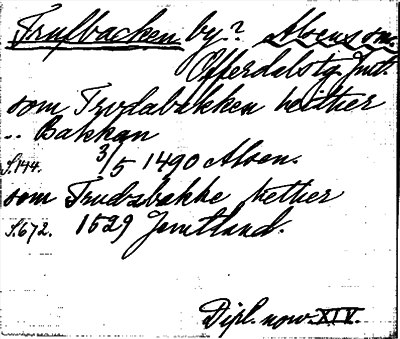 Trulbacken by? Alsens sn.
Offerdals tg. Jmt.
som Trodabakken hether
" Bakkan
S. 144. 3/5 1490 Alsen.
som Trudsbakke hether
S. 672. 1529 Jemtland.
Dipl. norv. XIV.